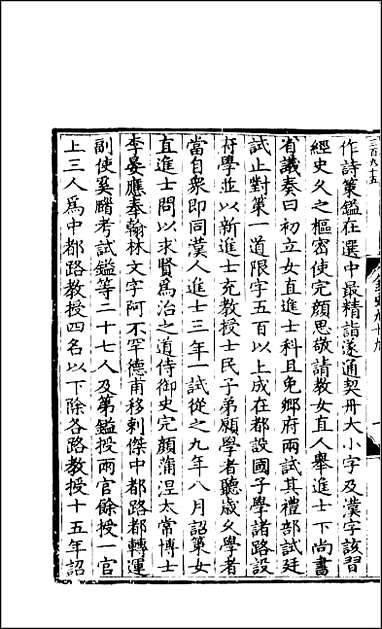 三百九十五
作詩策鑑在選中最精詣遂通契丹大小字及漢字該習
經史久之樞密使完顔思敬請教女直人舉進士下尚書
省議奏曰初立女直進士科且免鄉府兩試其禮部試廷
試止對策一道限字五百以上成在都設國子學諸路設
府學並以新進士充教授士民子弟願學者聽歳久學者
當自衆即同漢人進士三年一試從之九年八月詔策女
直進士問以求賢爲治之道侍御史完顔蒲涅太常博士
李晏應奉翰林文字阿不罕德甫移剌傑中都路都轉運
副使奚考試鑑等二十七人及第鑑授兩官餘授一官
上三人爲中都路教授四名以下除各路教授十五年詔